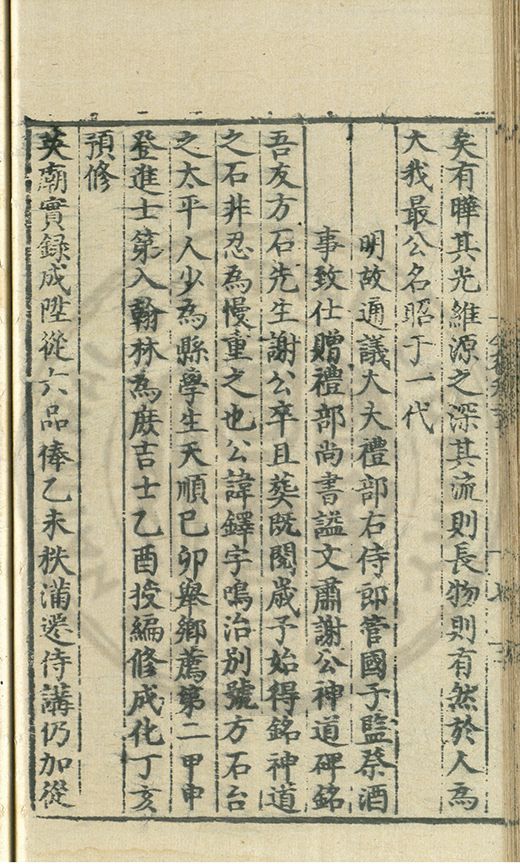 矣有曄其光維源之深其流則長物則有然於人為
大我最公名昭于一代
明故通議大夫禮部右侍郎管國子監祭酒
事致仕贈禮部尚書謚文肅謝公神道碑銘
吾友方石先生謝公卒且葬既閱歲予始得銘神道
之石非忍為慢重之也公諱鐸字鳴治別號方石台
之太平人少為縣學生天順己卯舉鄉薦第二甲申
登進士第入翰林為庶吉士乙酉授編修成化丁亥
預修
英廟實録成陞從六品俸乙未秩滿遷侍講仍加從